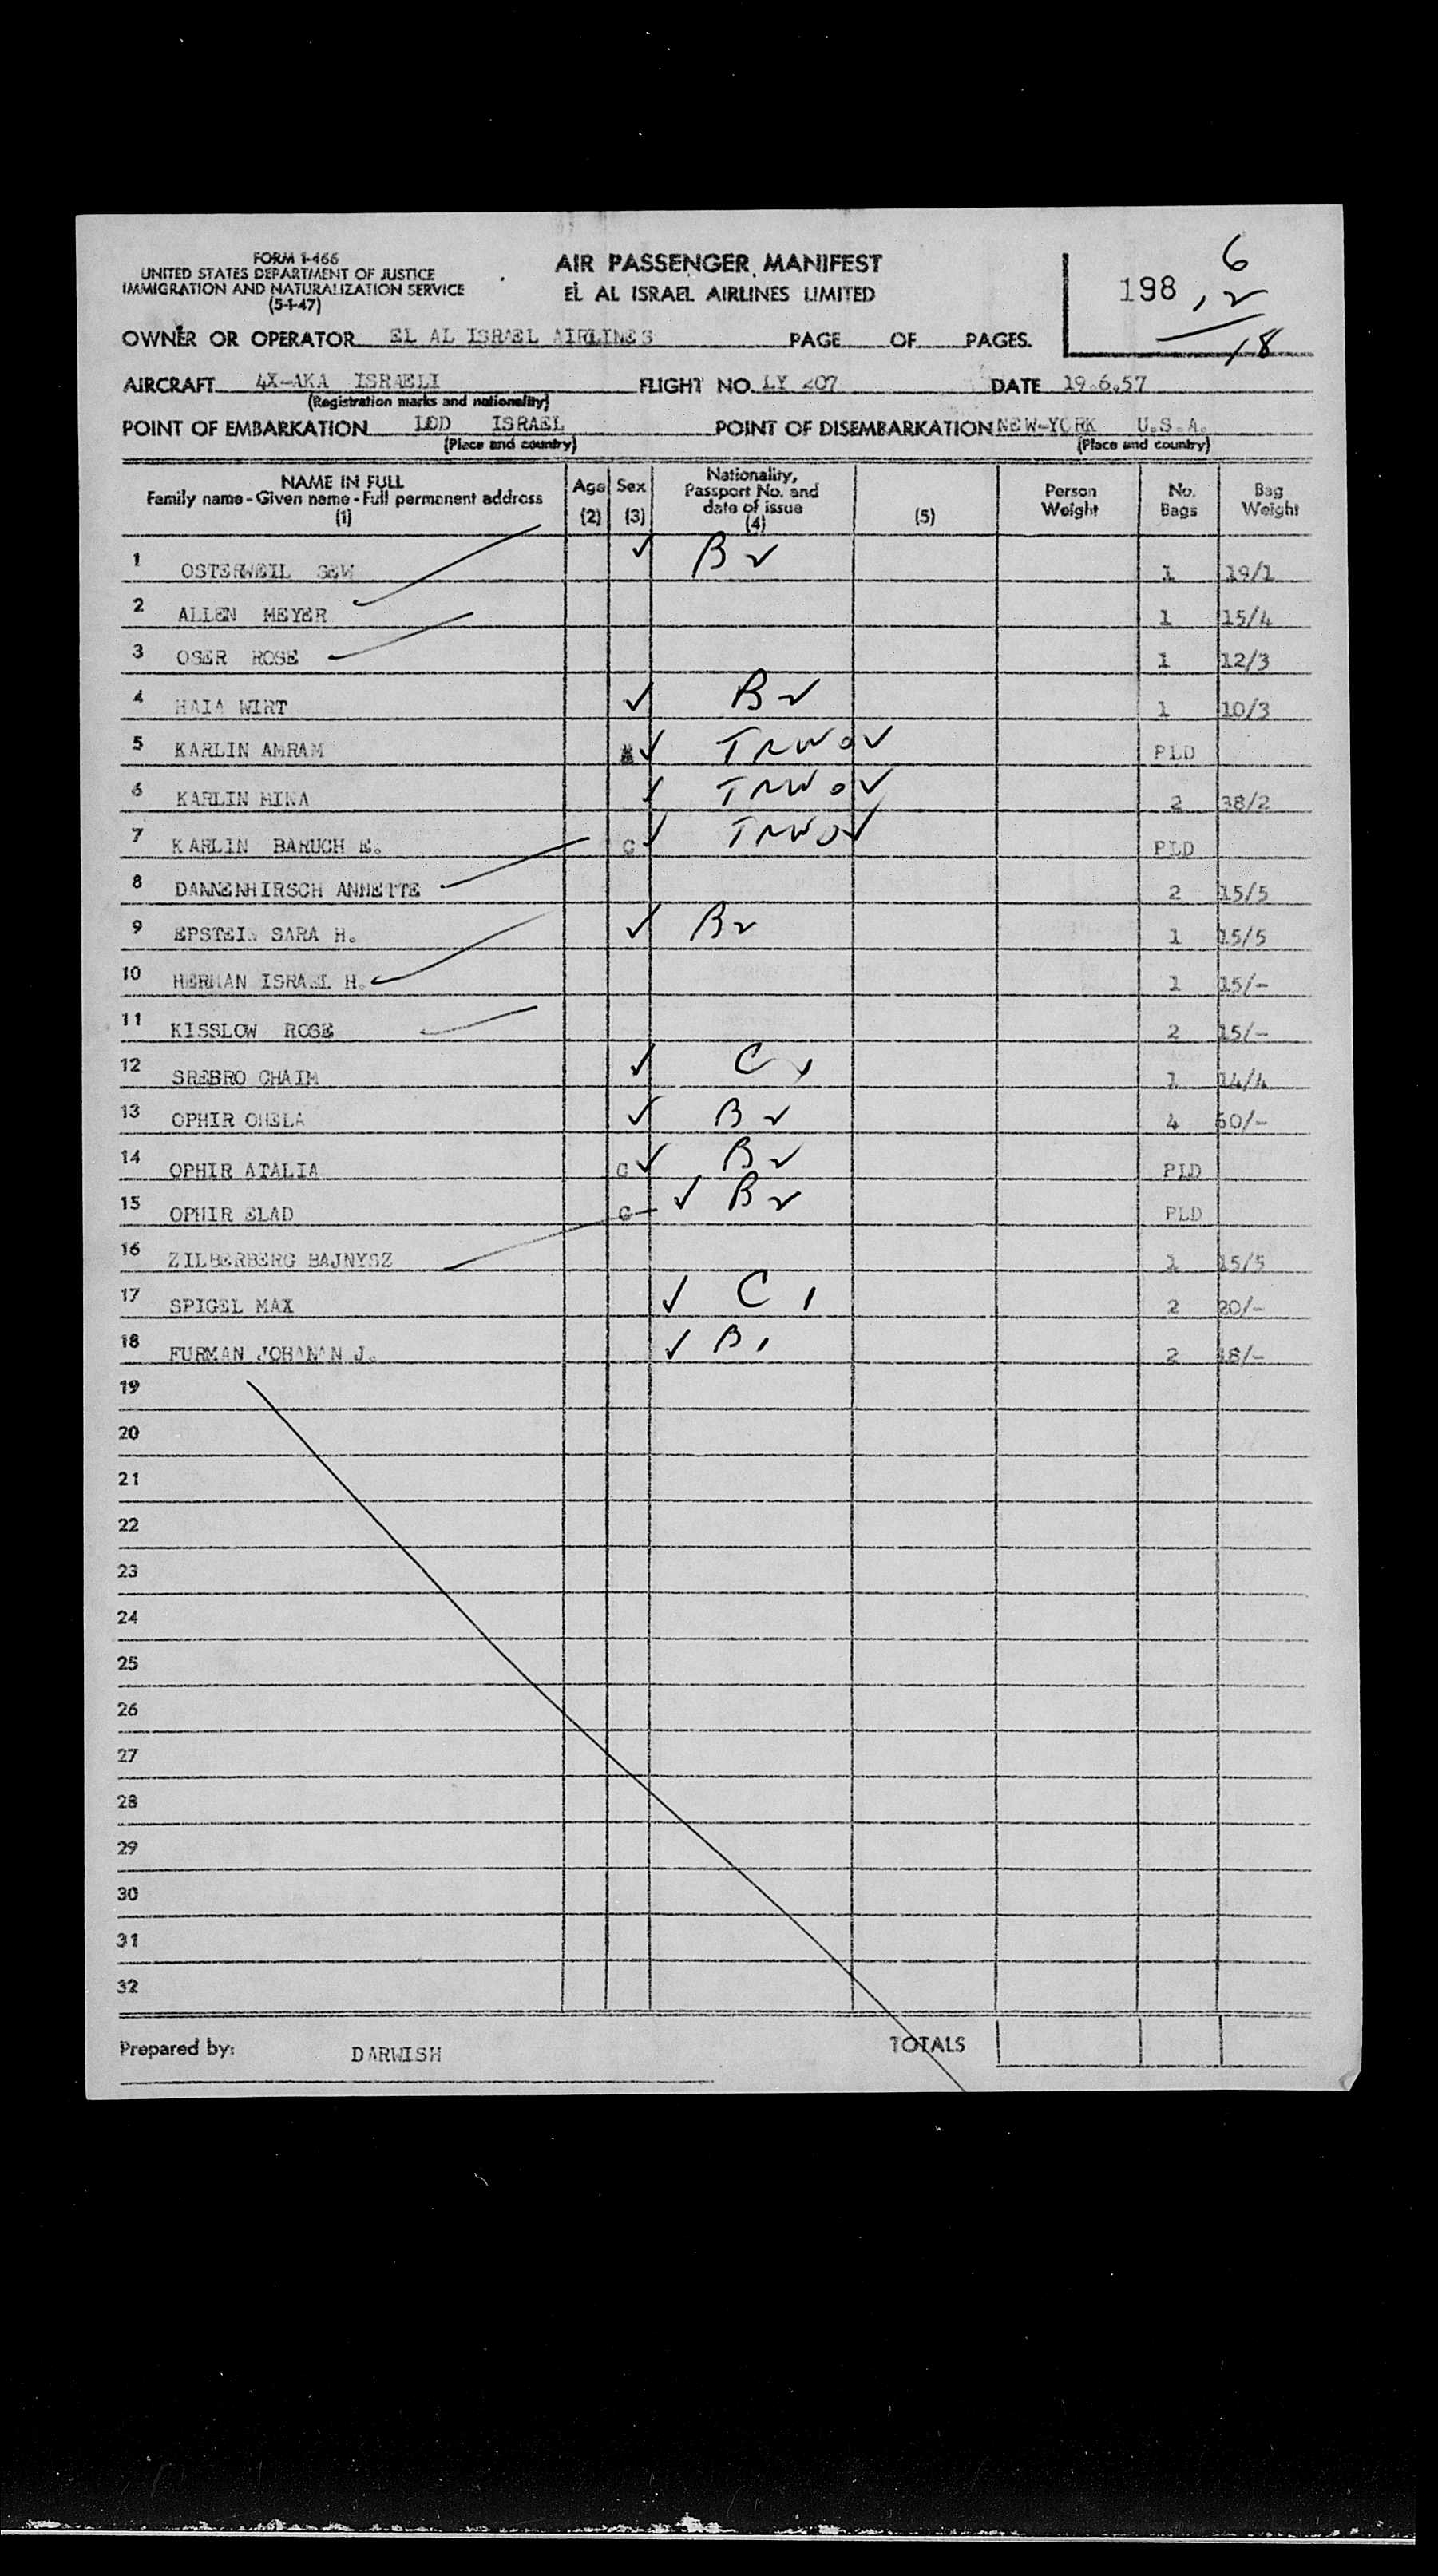 FORM I-466
UNITED STATES DEPARTMENT OF JUSTICE
IMMIGRATION AND NATURALIZATION SERVICE
(5-1-47)
AIR PASSENGER MANIFEST
EL AL ISRAEL AIRLINES LIMITED
198 6
12
18
OWNER OR OPERATOR EL AL ISRAEL AIRLINES PAGE OF PAGES.
AIRCRAFT 4X-AKA ISRAELI FLIGHT NO. LY 207 DATE 19.6.57
(Registration marks and nationality)
POINT OF EMBARKATION LOD ISRAEL POINT OF DISEMBARKATION NEW-YORK U.S.A.
(Place and country) (Place and country)
NAME IN FULL Family name - Given name - Full permanent address (1) Age (2) Sex (3) Nationality, Passport No. and date of issue (4) (5) Person Weight No. Bags Bag Weight
1 OSTERWEIL SEW ✓ B2 1 19/1
2 ALLEN MEYER 1 15/4
3 OSER ROSE 1 12/3
4 HAIA WIRT ✓ B2 1 10/3
5 KARLIN AMRAM ✓ TRWOV PLD
6 KARLIN MINA ✓ TRWOV 2 38/2
7 KARLIN BARUCH E. C ✓ TRWOV PLD
8 DANNENHIRSCH ANNETTE 2 15/5
9 EPSTEIN SARA H. ✓ B2 1 15/5
10 HERMAN ISRAEL H. 1 15/-
11 KISSLOW ROSE 2 15/-
12 SREBRO CHAIM ✓ C 1 1 14/4
13 OPHIR OHELA ✓ B2 4 60/-
14 OPHIR ATALIA C ✓ B2 PLD
15 OPHIR ELAD C ✓ B2 PLD
16 ZILBERBERG BAJNYSZ 1 15/5
17 SPIGEL MAX ✓ C 1 2 20/-
18 FURMAN JOHANAN J. ✓ B1 2 18/-
19
20
21
22
23
24
25
26
27
28
29
30
31
32
Prepared by: DARWISH TOTALS